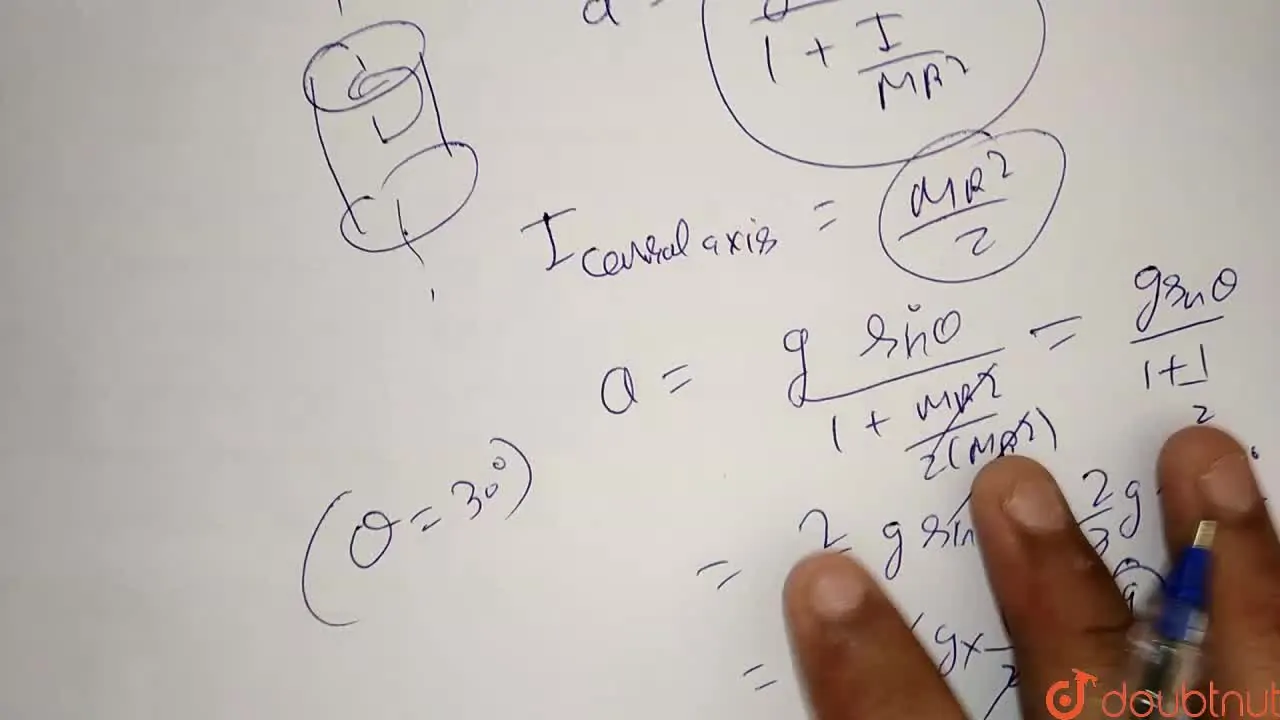 a = g / (1 + I/MR²)
I central axis = MR²/2
a = g sinθ / (1 + MR²/2(MR²)) = g sinθ / (1 + 1/2)
(θ = 30°)
= 2 g sin 2/3 g
= g ×
doubtnut